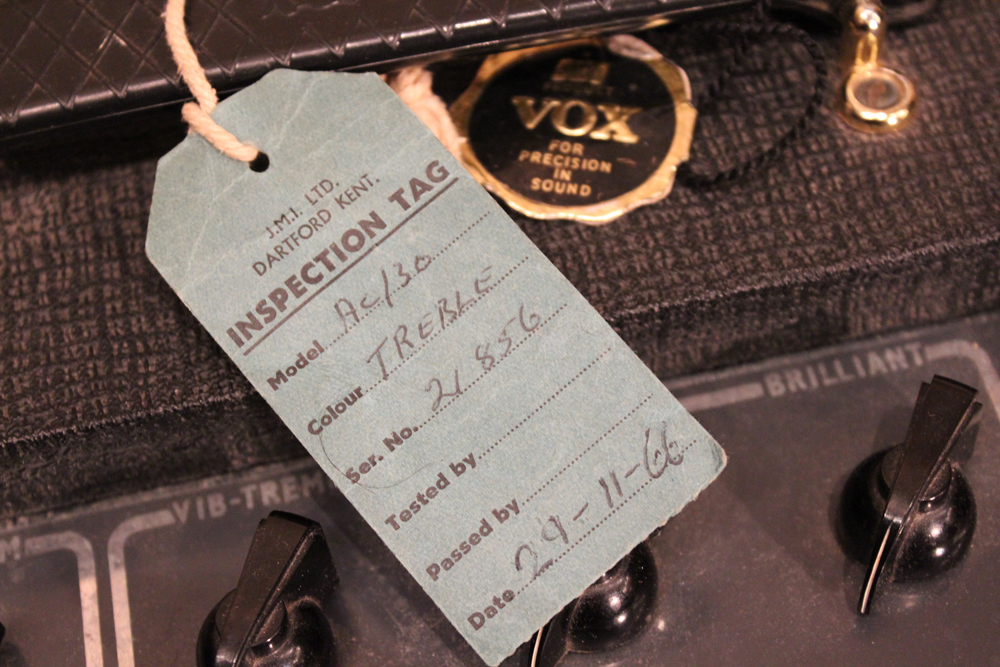 VOX
FOR
PRECISION
IN
SOUND
J.M.I. LTD.
DARTFORD KENT.
INSPECTION TAG
Model AC/30
Colour TREBLE
Ser. No. 21856
Tested by
Passed by
Date 29-11-66
BRILLIANT
VIB-TREM